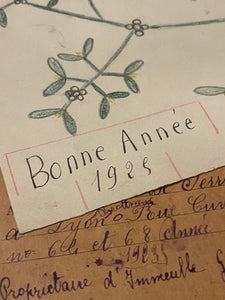 Bonne Année
1925
Terr
a Lyon Rue Cuv
no 64 et 68 Année
1925
Propriétaire d'Immeuble